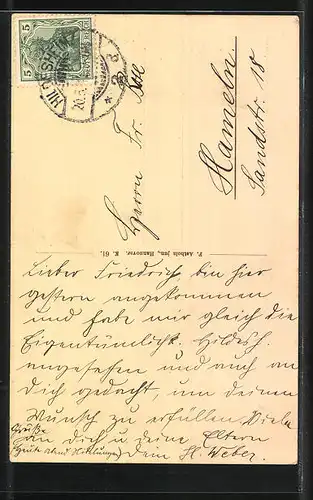 5 5
HILDESHEIM
Herrn Fr.
Hameln
Sandstr. 18
F. Astholz jun., Hannover. K. 61.
Lieber Friedrich bin hier
gestern angekommen
und habe mir gleich die
Eigentümlichk. Hildesh.
angesehen und auch an
Dich gedacht, um deinen
Wunsch zu erfüllen Viele
Grüße an Dich u. deine Eltern
dein H. Weber.